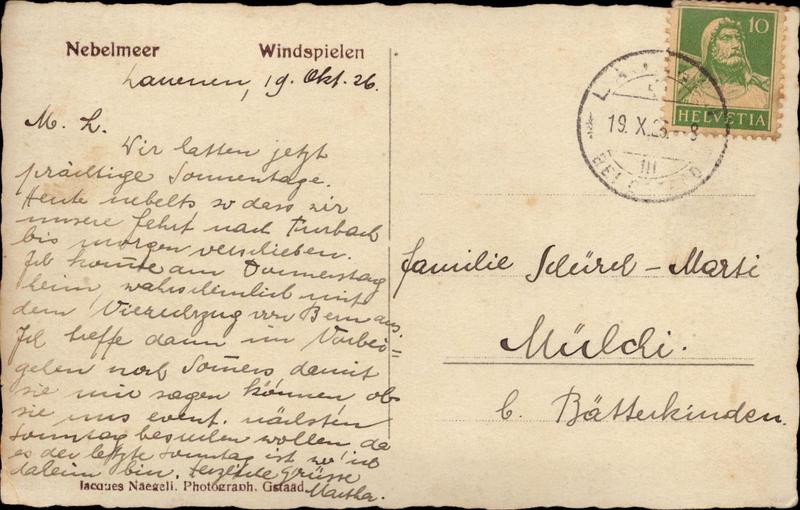 Nebelmeer Windspielen
Lauenen, 19. Okt. 26.
M. L.
Wir hatten jetzt
prächtige Sonnentage.
Heute nebelts so dass wir
unsere Fahrt nach Turbach
bis morgen verschieben.
Ich komme am Donnerstag
heim, wahrscheinlich mit
dem Vieruhrzug von Bern aus.
Ich treffe dann im Vorbei=
gehen noch Somers damit
sie mir sagen können ob
sie uns event. nächsten
Sonntag besuchen wollen, da
es der letzte Sonntag ist wo ich
daheim bin. Herzliche Grüsse
Martha.
Jacques Naegeli. Photograph. Gstaad
10
HELVETIA
19. X. 26. 8
III
Familie Schürch-Marti
Mülchi.
b. Bätterkinden.